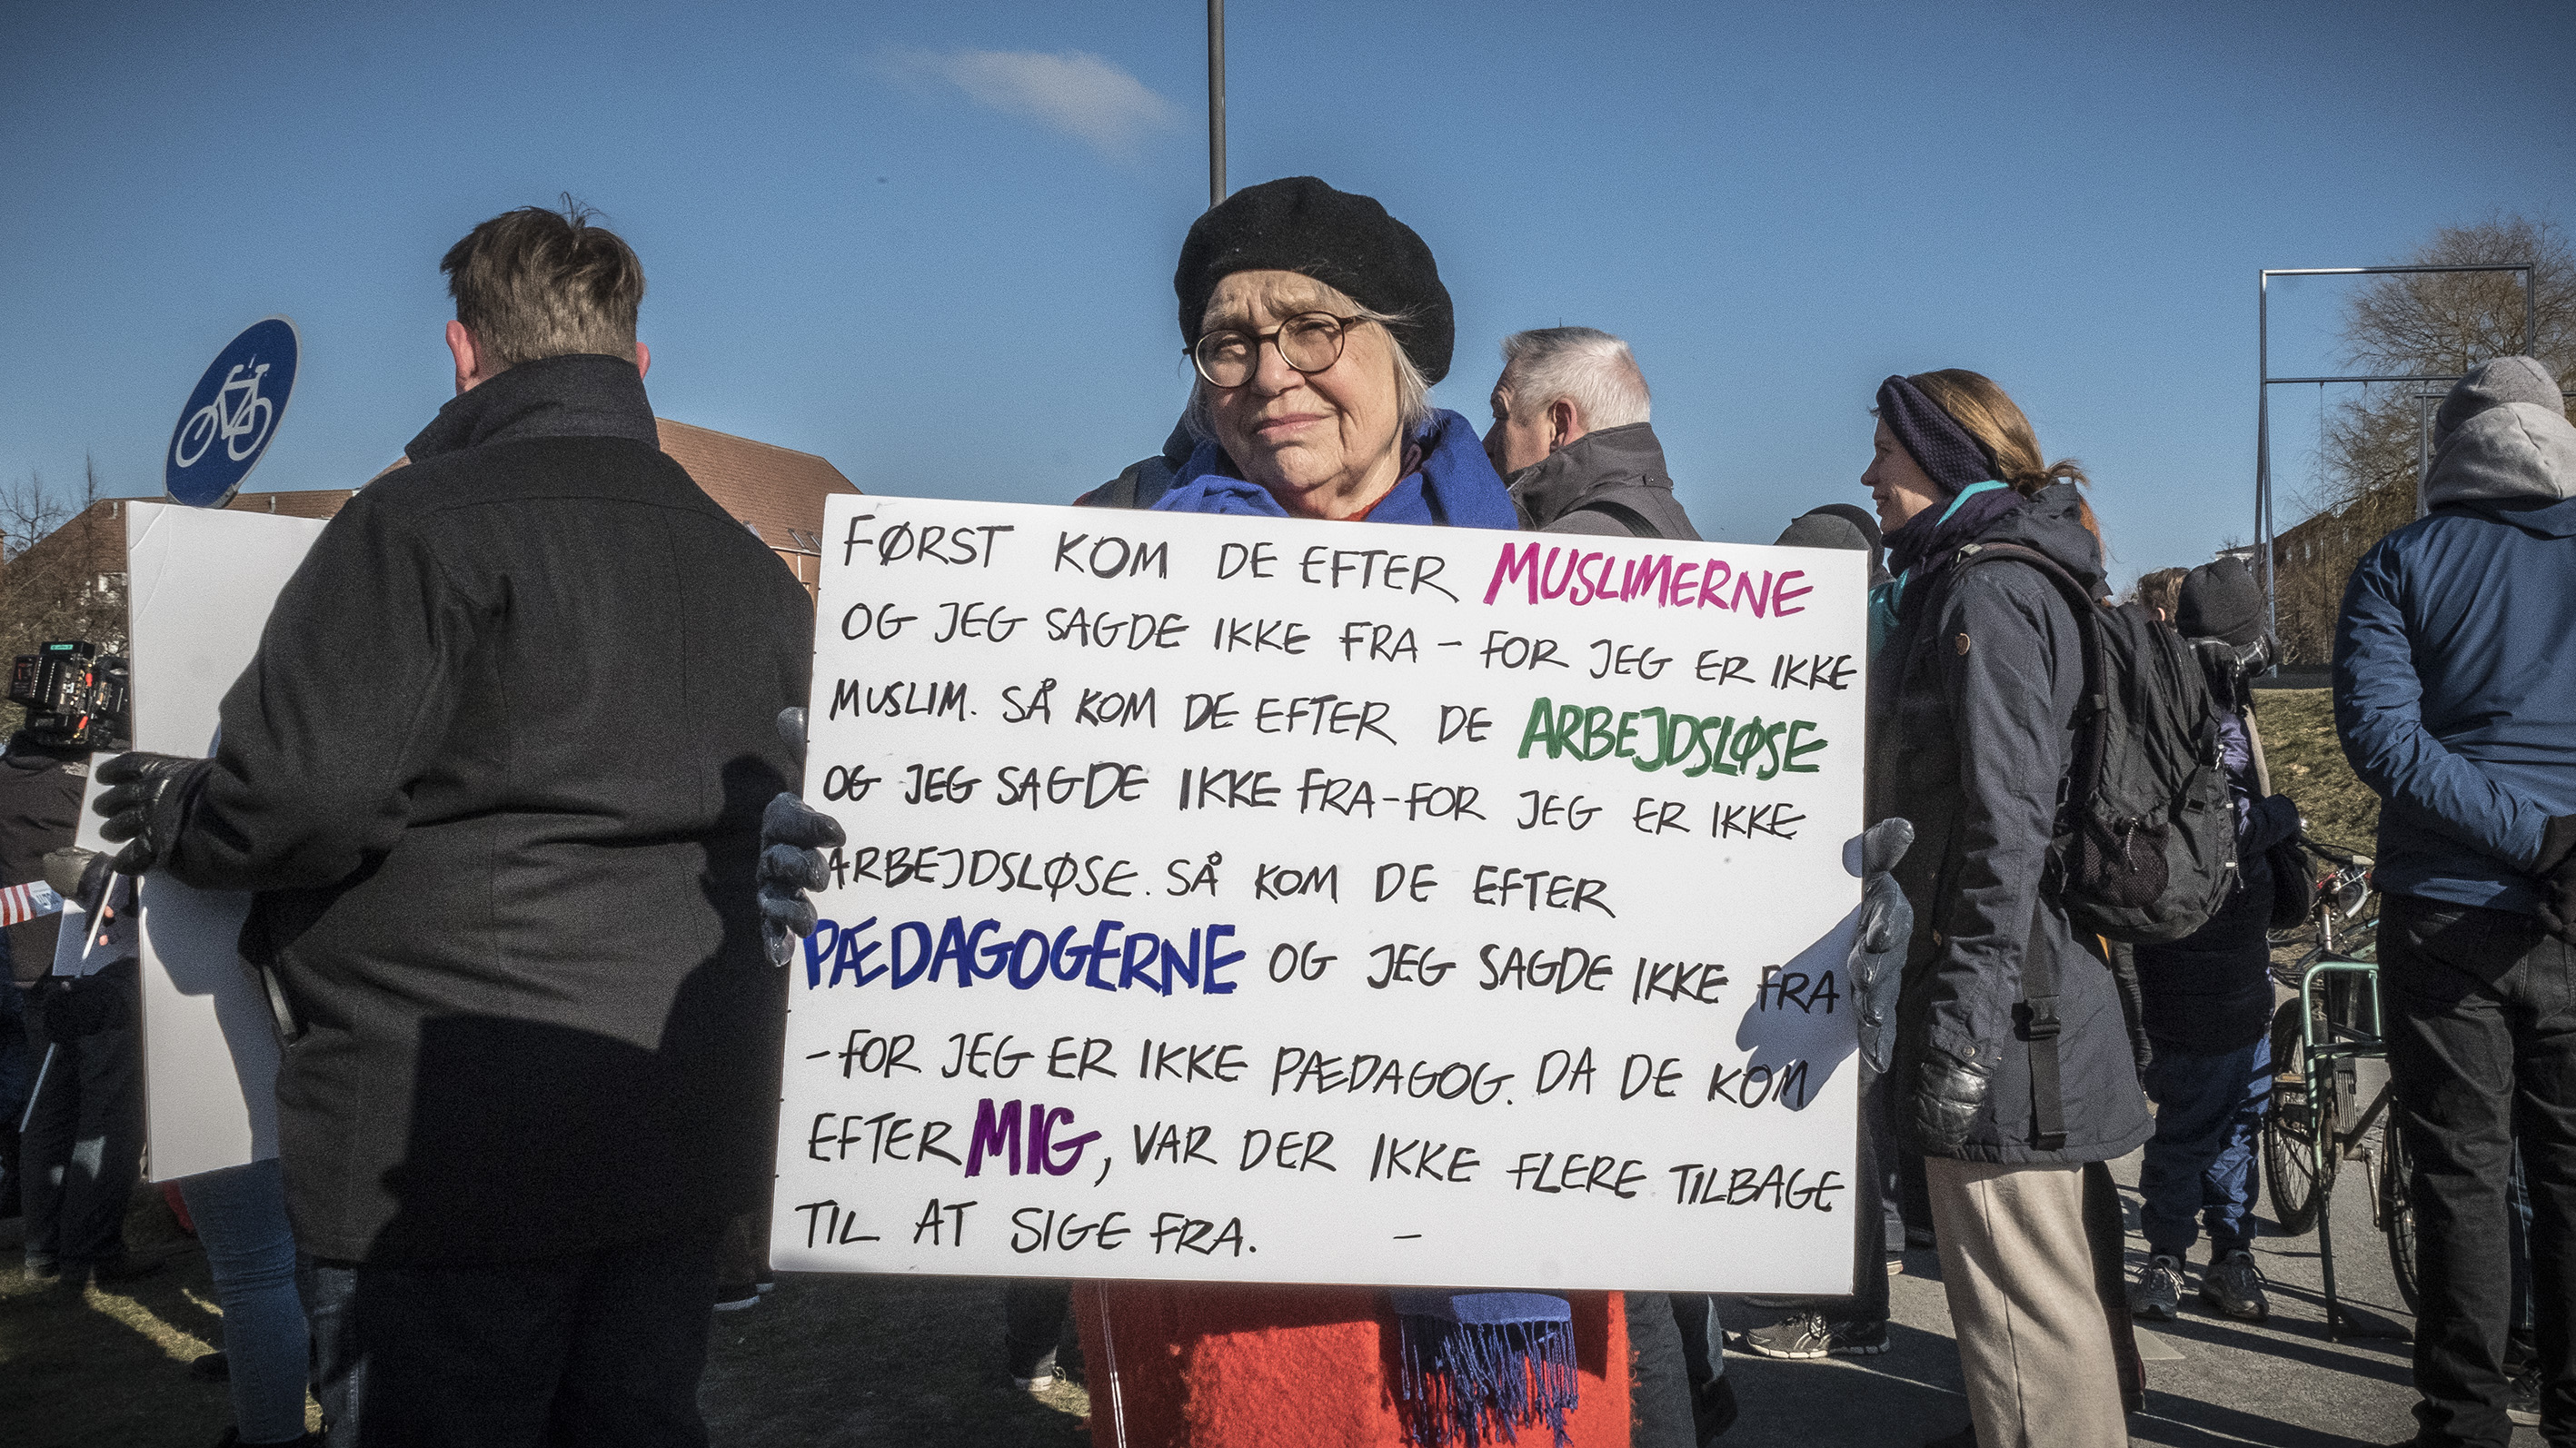 FØRST KOM DE EFTER MUSLIMERNE
OG JEG SAGDE IKKE FRA - FOR JEG ER IKKE
MUSLIM. SÅ KOM DE EFTER DE ARBEJDSLØSE
OG JEG SAGDE IKKE FRA - FOR JEG ER IKKE
ARBEJDSLØSE. SÅ KOM DE EFTER
PÆDAGOGERNE OG JEG SAGDE IKKE FRA
- FOR JEG ER IKKE PÆDAGOG. DA DE KOM
EFTER MIG, VAR DER IKKE FLERE TILBAGE
TIL AT SIGE FRA. -